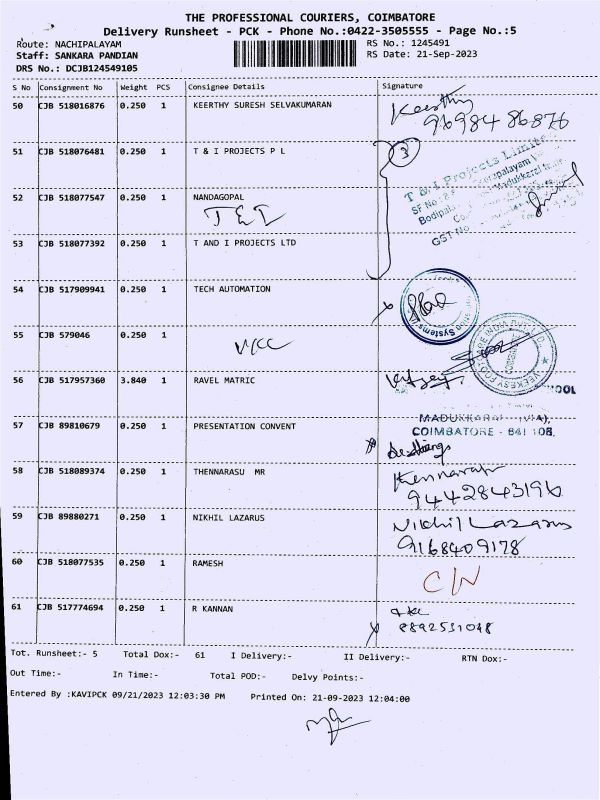 THE PROFESSIONAL COURIERS, COIMBATORE
Delivery Runsheet - PCK - Phone No.:0422-3505555 - Page No.:5
Route: NACHIPALAYAM
RS No.: 1245491
Staff: SANKARA PANDIAN
RS Date: 21-Sep-2023
DRS No.: DCJB124549105
S No Consignment No Weight PCS Consignee Details Signature
50 CJB 518016876 0.250 1 KEERTHY SURESH SELVAKUMARAN Keerthy
9698486876
51 CJB 518076481 0.250 1 T & I PROJECTS P L 3
T & I Projects Limited
52 CJB 518077547 0.250 1 NANDAGOPAL
T & I
53 CJB 518077392 0.250 1 T AND I PROJECTS LTD
54 CJB 517909941 0.250 1 TECH AUTOMATION
55 CJB 579046 0.250 1
56 CJB 517957360 3.840 1 RAVEL MATRIC
57 CJB 89810679 0.250 1 PRESENTATION CONVENT
COIMBATORE - 641 105.
58 CJB 518089374 0.250 1 THENNARASU MR
9442843196
59 CJB 89880271 0.250 1 NIKHIL LAZARUS Nikhil Lazarus
9168409178
60 CJB 518077535 0.250 1 RAMESH
61 CJB 517774694 0.250 1 R KANNAN
8892531048
Tot. Runsheet:- 5 Total Dox:- 61 I Delivery:- II Delivery:- RTN Dox:-
Out Time:- In Time:- Total POD:- Delvy Points:-
Entered By :KAVIPCK 09/21/2023 12:03:30 PM Printed On: 21-09-2023 12:04:00